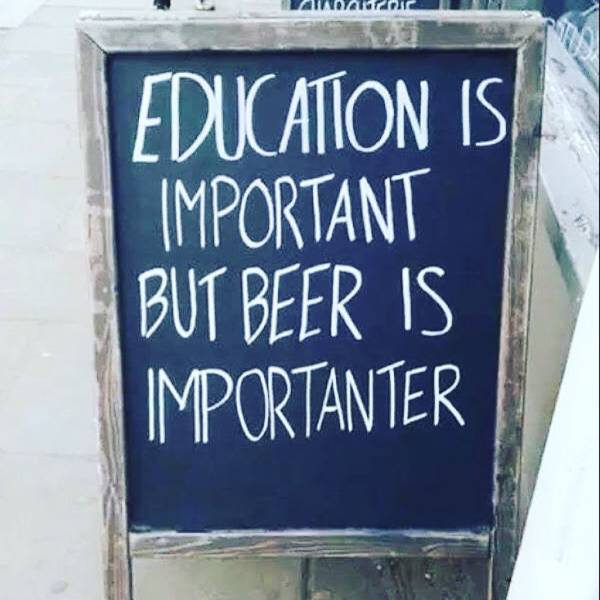 CHARCUTERIE
EDUCATION IS
IMPORTANT
BUT BEER IS
IMPORTANTER